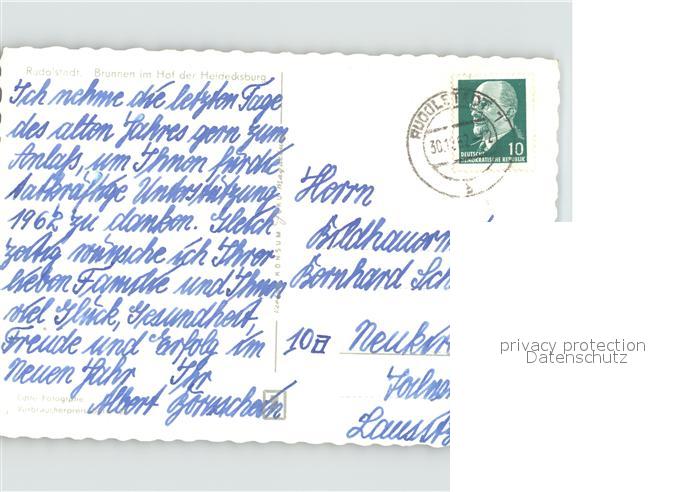 Rudolstadt. Brunnen im Hof der Heidecksburg
Ich nehme die letzten Tage
des alten Jahres gern zum
Anlaß, um Ihnen für die
tatkräftige Unterstützung
1962 zu danken. Gleich
zeitig wünsche ich Ihrer
lieben Familie und Ihnen
viel Glück, Gesundheit,
Freude und Erfolg im
Neuen Jahr Ihr
Albert
Echte Fotografie
Verbraucherpreis
KONSUM
RUDOLSTADT 1
30.12.62
b
DEUTSCHE
DEMOKRATISCHE REPUBLIK
10
Herrn
Bildhauerm
Bernhard Sch
10a Neukir
Lausitz
privacy protection
Datenschutz